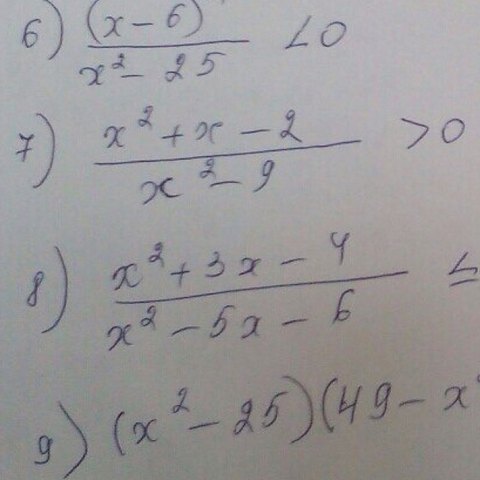 6) (x-6) / x² - 25 < 0
7) x² + x - 2 / x² - 9 > 0
8) x² + 3x - 4 / x² - 5x - 6 ≤
9) (x² - 25)(49 - x